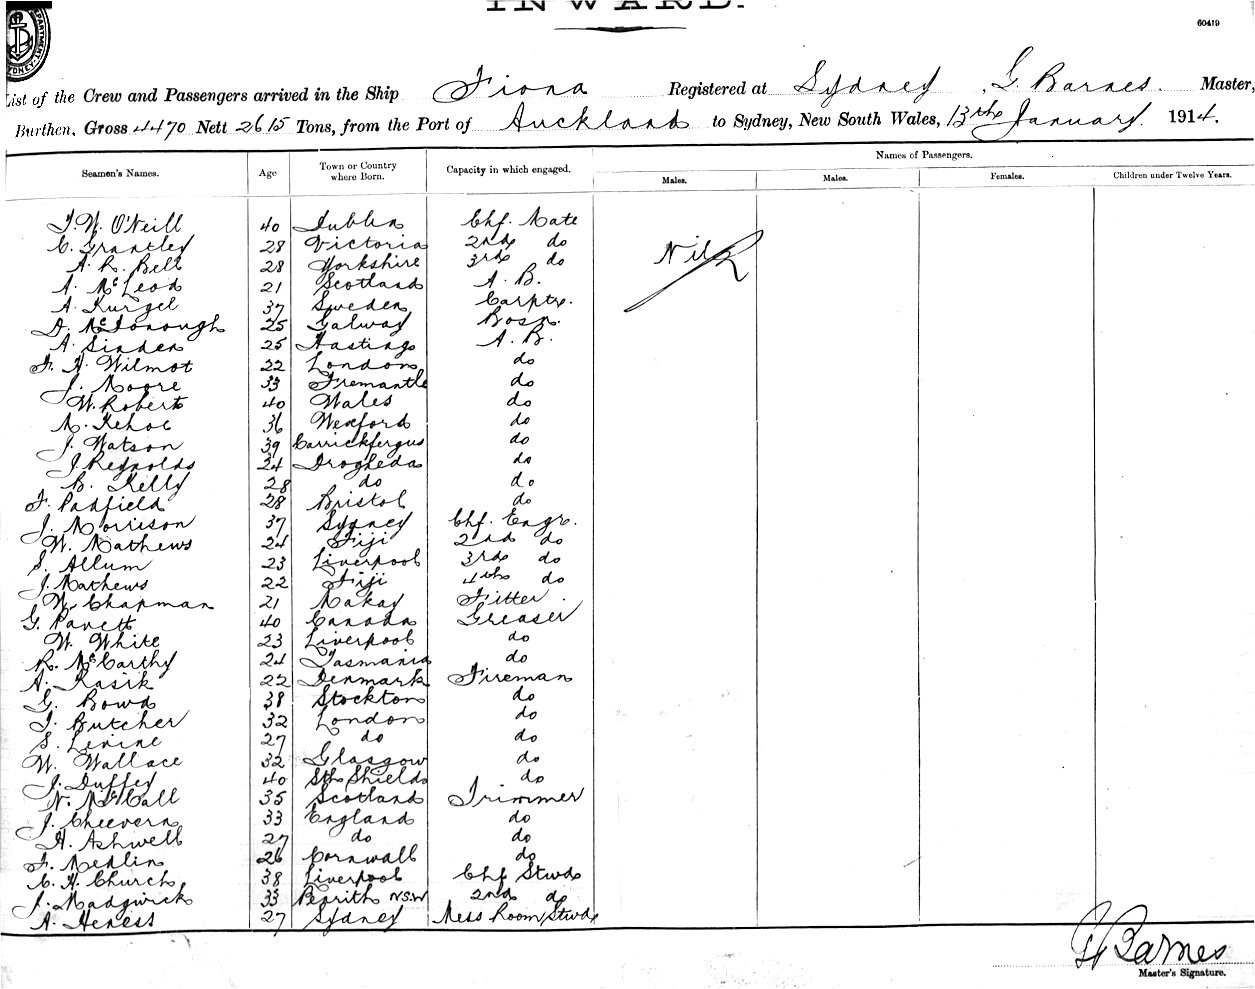 INWARD.
60419
DEPARTMENT SYDNEY
List of the Crew and Passengers arrived in the Ship Fiona Registered at Sydney, G Barnes. Master,
Burthen, Gross 4470 Nett 2615 Tons, from the Port of Auckland to Sydney, New South Wales, 13th January 1914.
Seamen's Names. Age Town or Country where Born. Capacity in which engaged. Names of Passengers.
Males. Males. Females. Children under Twelve Years.
J. W. O'Neill 40 Dublin Chf. Mate
C. Grantley 28 Victoria 2nd do Nil
A. R. Bell 28 Yorkshire 3rd do
A. McLeod 21 Scotland A. B.
A. Kurgel 37 Sweden Carptr.
D. McDonough 25 Galway Bosn.
A. Sinden 25 Hastings A. B.
F. H. Wilmot 22 London do
J. Moore 33 Fremantle do
W. Roberts 40 Wales do
M. Kehoe 36 Wexford do
J. Watson 39 Carrickfergus do
J. Reynolds 24 Drogheda do
B. Kelly 28 do do
F. Padfield 28 Bristol do
J. Morrison 37 Sydney Chf. Engr.
W. Mathews 24 Fiji 2nd do
S. Allum 23 Liverpool 3rd do
J. Mathews 22 Fiji 4th do
W. Chapman 21 Makay Fitter
G. Pavett 40 Canada Greaser
W. White 23 Liverpool do
R. McCarthy 24 Tasmania do
A. Rasik 22 Denmark Fireman
G. Bowd 38 Stockton do
J. Butcher 32 London do
S. Levine 27 do do
W. Wallace 32 Glasgow do
J. Duffey 40 Sth Shields do
N. McCall 35 Scotland Trimmer
J. Cheevers 33 England do
H. Ashwell 27 do do
F. Medlin 26 Cornwall do
C. H. Church 38 Liverpool Chf Stwd
J. Madgwick 33 Penrith N.S.W 2nd do
A. Heness 27 Sydney Mess Room Stwd
G Barnes
Master's Signature.